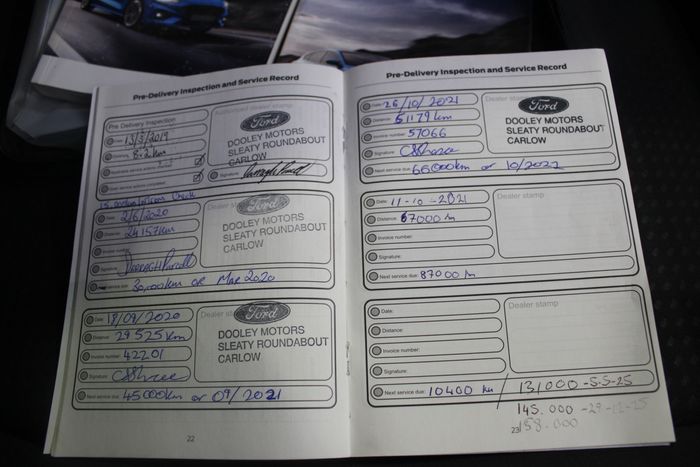 Pre-Delivery Inspection and Service Record
Pre Delivery Inspection
Date: 13/3/2019
8.2km
Signature:
Authorised dealer stamp
Ford
DOOLEY MOTORS
SLEATY ROUNDABOUT
CARLOW
Date: 2/6/2020
Distance: 24157km
Invoice number:
Signature: Darragh Purcell
Next service due: 30,000km OR Mar 2020
Dealer stamp
Ford
DOOLEY MOTORS
SLEATY ROUNDABOUT
CARLOW
Date: 18/09/2020
Distance: 29525km
Invoice number: 42201
Signature:
Next service due: 45000km or 09/2021
Dealer stamp
Ford
DOOLEY MOTORS
SLEATY ROUNDABOUT
CARLOW
22
Pre-Delivery Inspection and Service Record
Date: 26/10/2021
Distance: 51179km
Invoice number: 57066
Signature:
Next service due: 66000km or 10/2022
Dealer stamp
Ford
DOOLEY MOTORS
SLEATY ROUNDABOUT
CARLOW
Date: 11-10-2021
Distance: 67000
Invoice number:
Signature:
Next service due: 87000
Dealer stamp
Date:
Distance:
Invoice number:
Signature:
Next service due: 10400 / 131000-5-5-25
Dealer stamp
145.000 -29-12-25
23 158.000